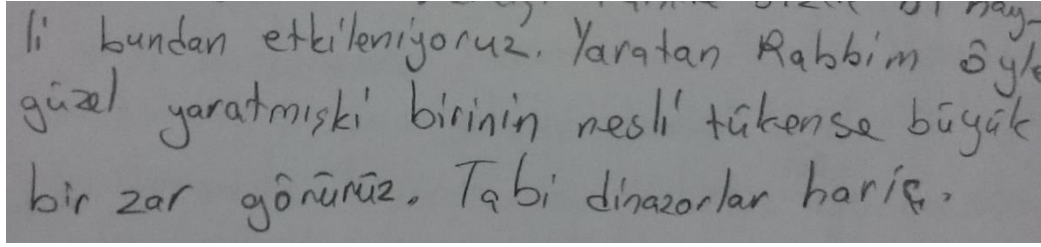 li bundan etkileniyoruz. Yaratan Rabbim öyle
güzel yaratmışki birinin nesli tükense büyük
bir zar görürüz. Tabi dinazorlar hariç.